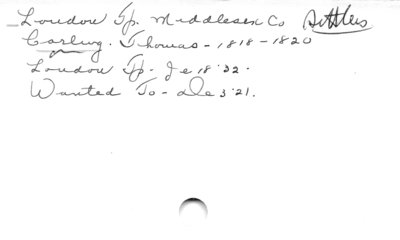 London Tp. Middlesex Co Settlers
Carling. Thomas - 1818 - 1820
London Tp - Je 18 '32 -
Wanted To - De 3 '21.